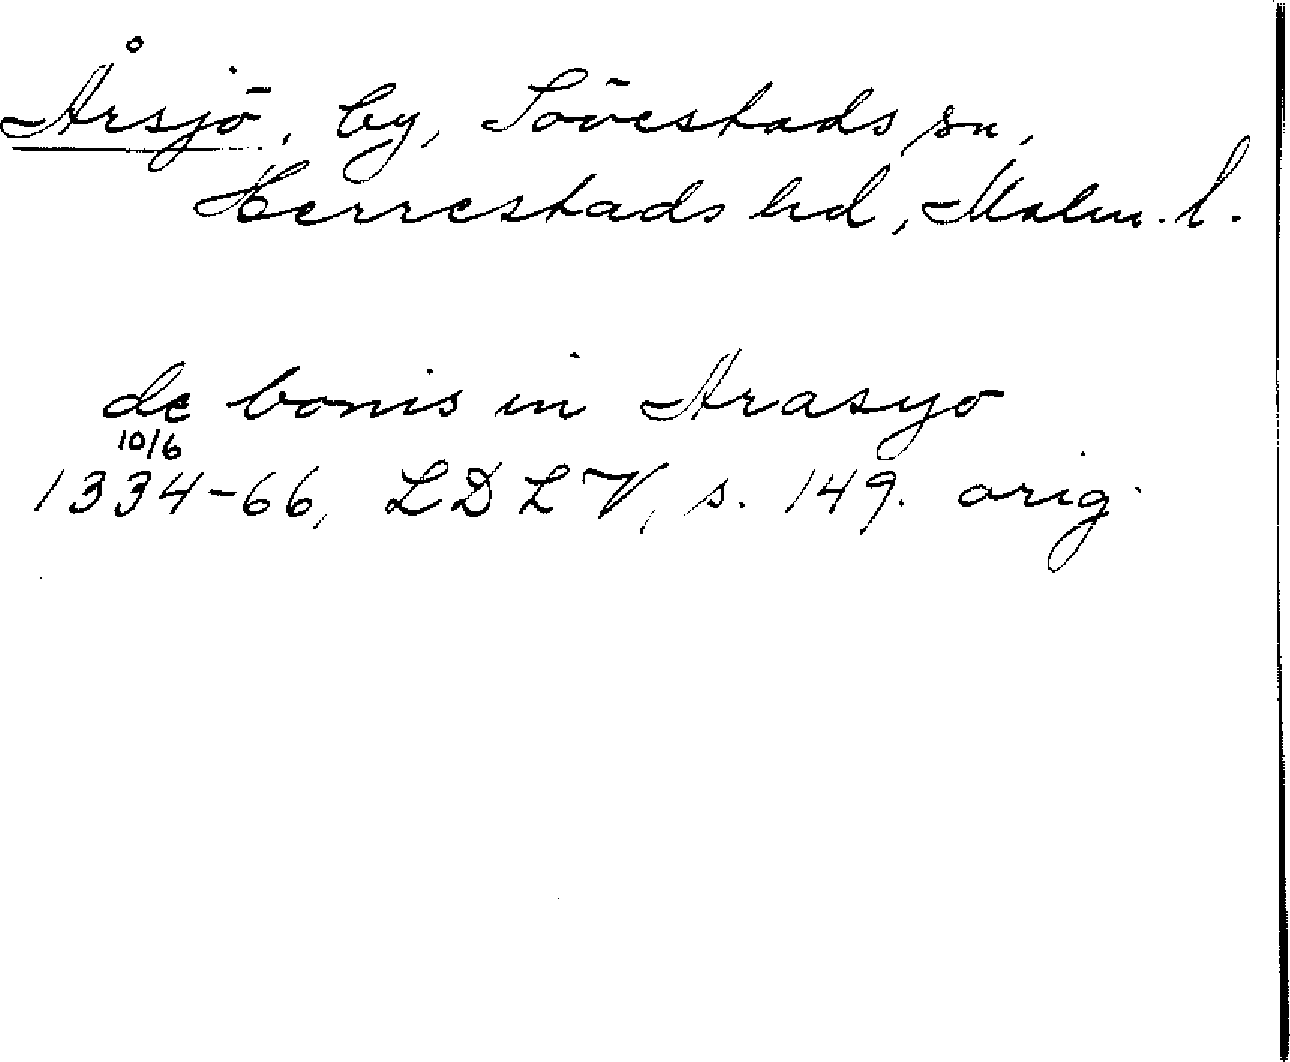 Årsjö, by, Sövestads sn,
Herrestads hd, Malm. l.
de bonis in Arasyo
10/6
1334-66, LDLV, s. 149. orig.